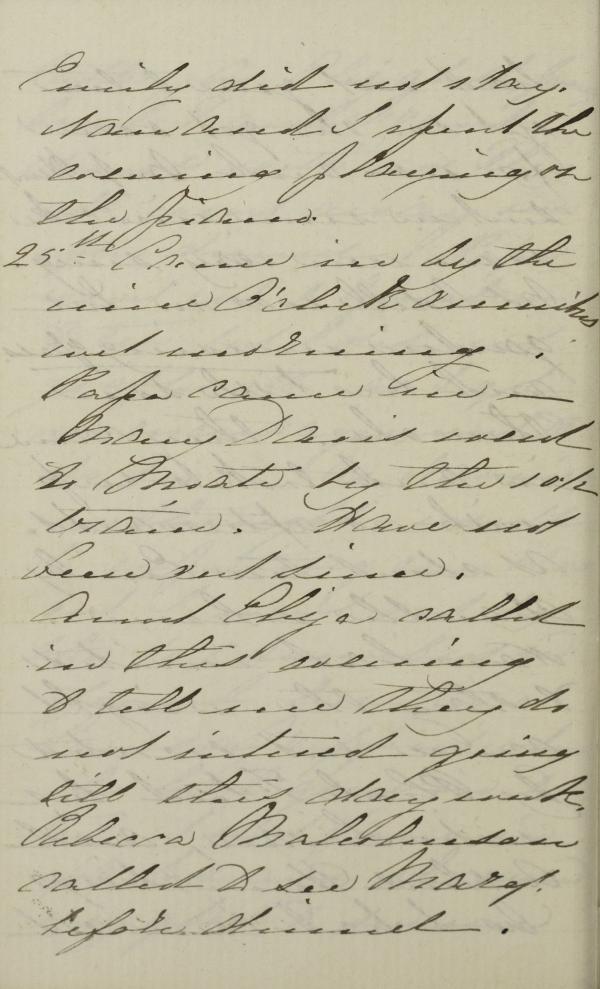 Emily did not stay.
Nan and I spent the
evening playing on
the piano.
25th Came in by the
nine O'clock omnibus
wet morning.
Papa came in —
Mary Davis went
to Moate by the 10½
train. Have not
been out since.
Aunt Eliza called
in this evening
to tell me they do
not intend going
till this day week.
Rebecca Malcolmson
called to see Mary.
before dinner.